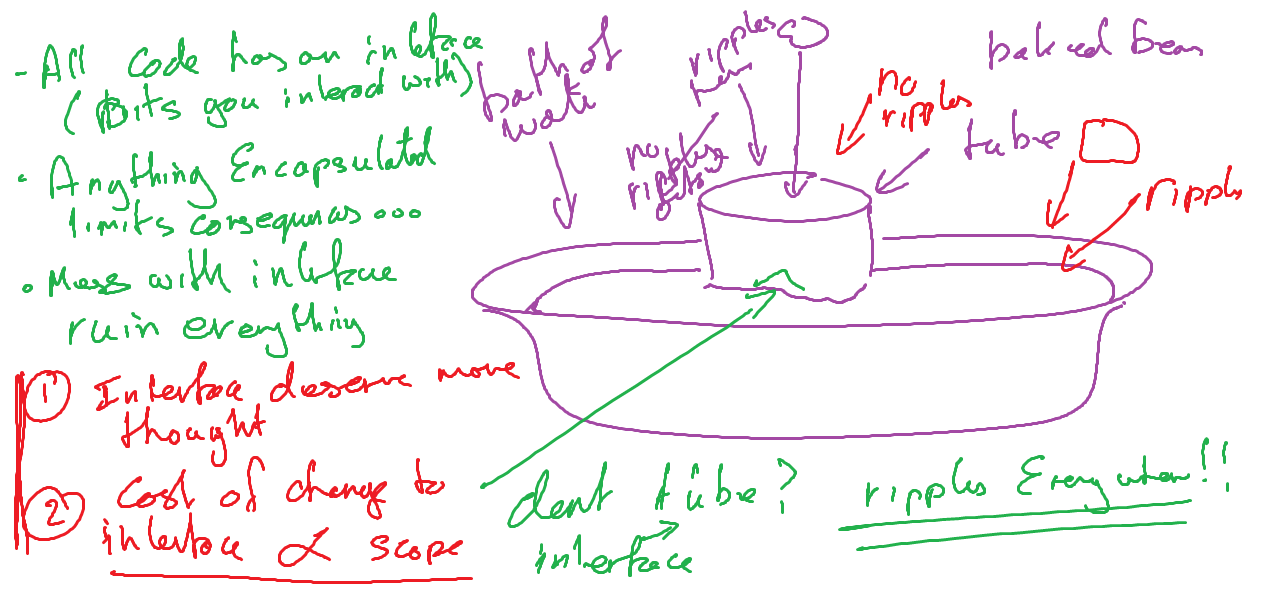 - All code has an interface
(Bits you interact with)
• Anything Encapsulated
limits consequences...
• Mess with interface
ruin everything
① Interface deserve more
thought
② Cost of change to
interface ∝ scope
bath of
water
ripples
here
no
ripples
no
ripples
baked bean
tube
ripples
dent tube?
interface
ripples Everywhere!!